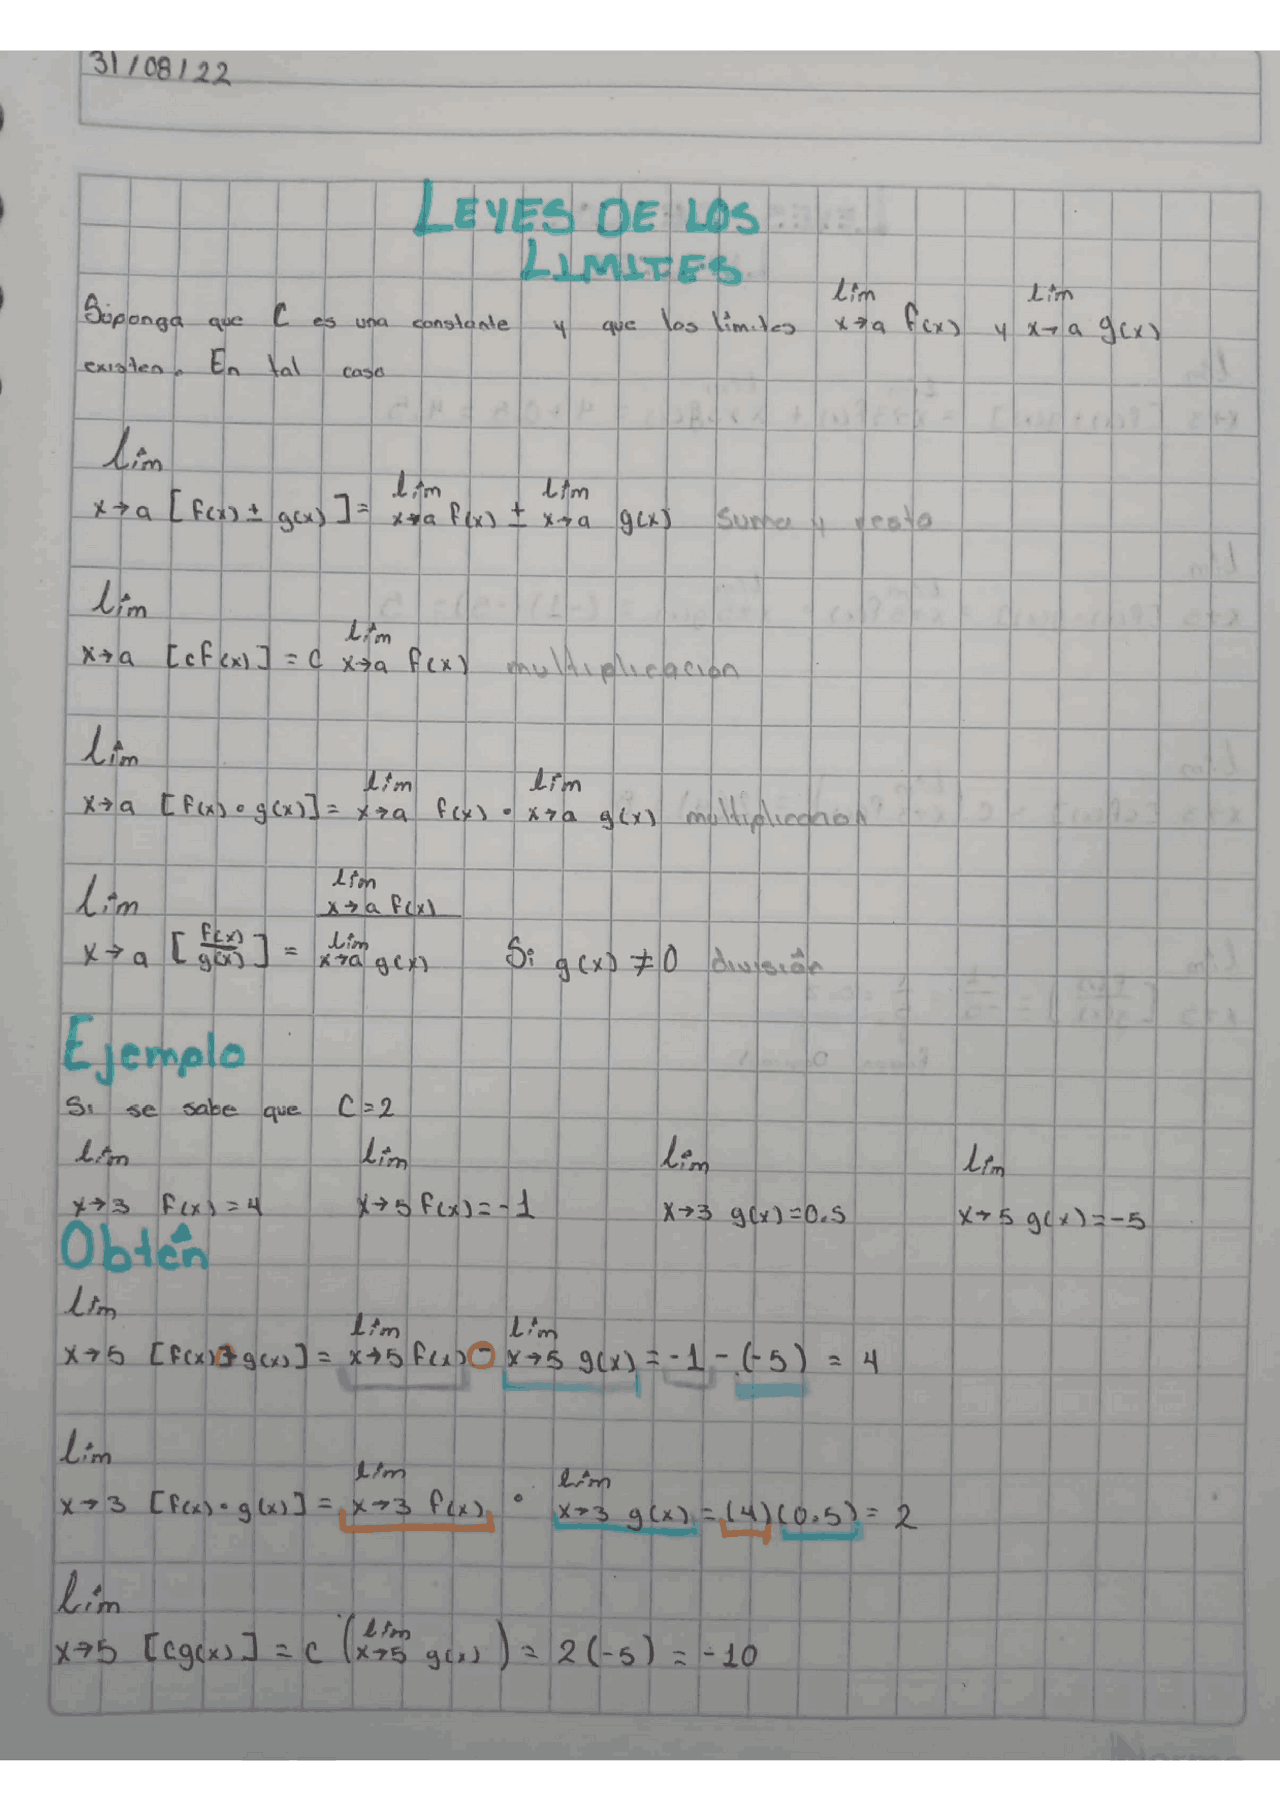 31/08/22
LEYES DE LOS
LIMITES
Suponga que C es una constante y que los límites lím x→a f(x) y lím x→a g(x)
existen. En tal caso
lím
x→a [f(x) ± g(x)] = lím x→a f(x) ± lím x→a g(x) suma y resta
lím
x→a [cf(x)] = c lím x→a f(x) multiplicacion
lím
x→a [f(x) • g(x)] = lím x→a f(x) • lím x→a g(x) multiplicacion
lím
x→a [f(x)/g(x)] = lím x→a f(x) / lím x→a g(x) Si g(x) ≠ 0 división
Ejemplo
Si se sabe que C=2
lím lím lím lím
x→3 f(x)=4 x→5 f(x)=-1 x→3 g(x)=0.5 x→5 g(x)=-5
Obtén
lím
x→5 [f(x) g(x)] = lím x→5 f(x) - lím x→5 g(x) = -1 - (-5) = 4
lím
x→3 [f(x) • g(x)] = lím x→3 f(x) • lím x→3 g(x) = (4)(0.5) = 2
lím
x→5 [cg(x)] = c (lím x→5 g(x)) = 2(-5) = -10
Norma